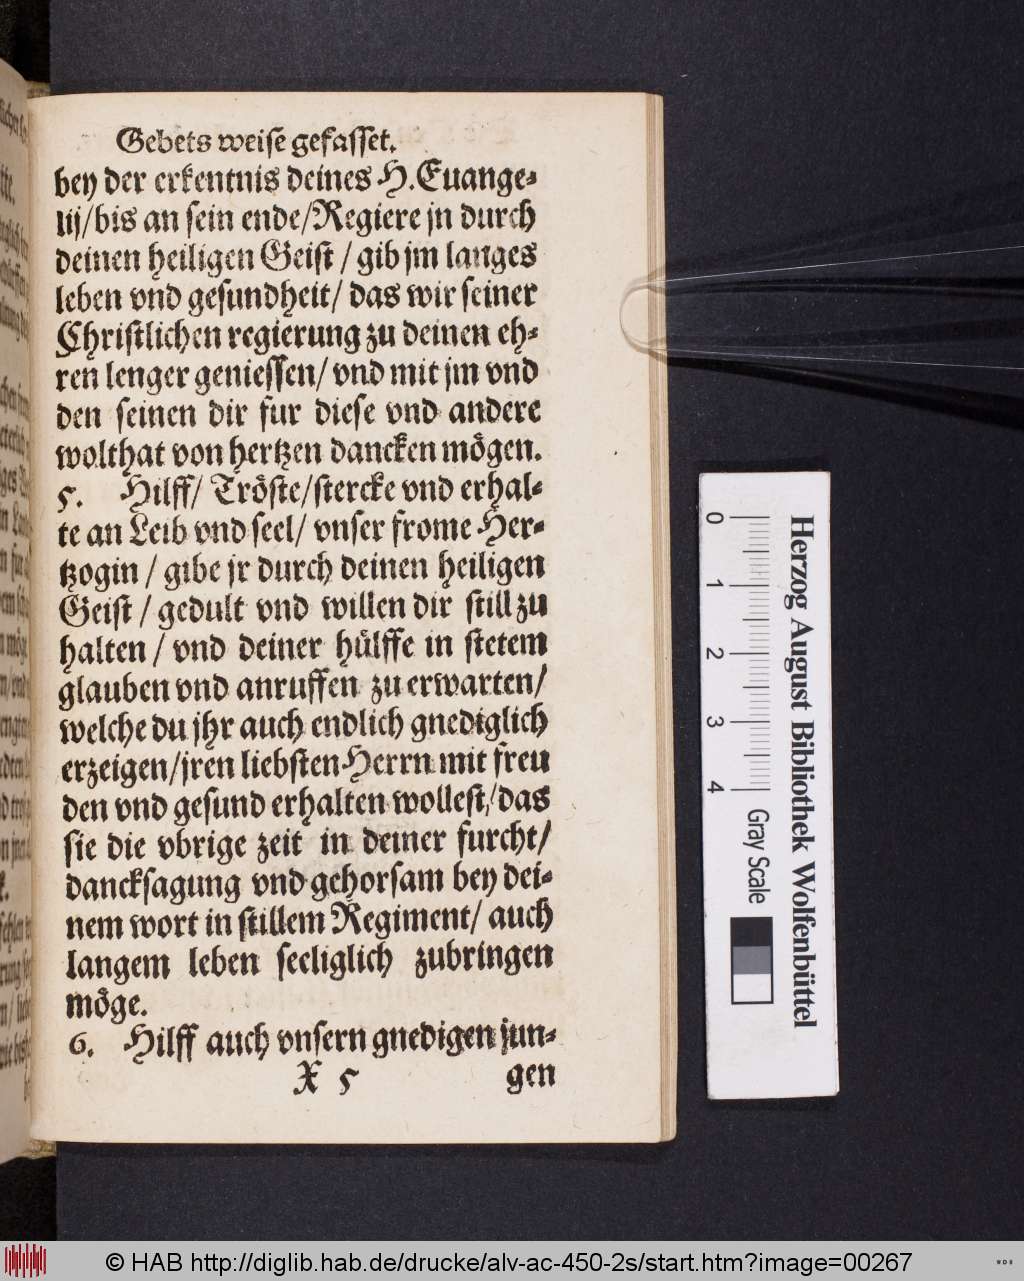 Gebets weise gefasset.
bey der erkentnis deines H. Euange-
lij/ bis an sein ende/ Regiere jn durch
deinen heiligen Geist / gib jm langes
leben vnd gesundheit/ das wir seiner
Christlichen regierung zu deinen eh-
ren lenger geniessen/ vnd mit jm vnd
den seinen dir fur diese vnd andere
wolthat von hertzen dancken mögen.
5. Hilff/ Tröste/ stercke vnd erhal-
te an Leib vnd seel/ vnser frome Her-
tzogin / gibe jr durch deinen heiligen
Geist / gedult vnd willen dir still zu
halten / vnd deiner hülffe in stetem
glauben vnd anruffen zu erwarten/
welche du jhr auch endlich gnediglich
erzeigen/ jren liebsten Herrn mit freu
den vnd gesund erhalten wollest/ das
sie die vbrige zeit in deiner furcht/
dancksagung vnd gehorsam bey dei-
nem wort in stillem Regiment/ auch
langem leben seeliglich zubringen
möge.
6. Hilff auch vnsern gnedigen jun-
X 5 gen
Herzog August Bibliothek Wolfenbüttel
0 1 2 3 4 Gray Scale
© HAB http://diglib.hab.de/drucke/alv-ac-450-2s/start.htm?image=00267